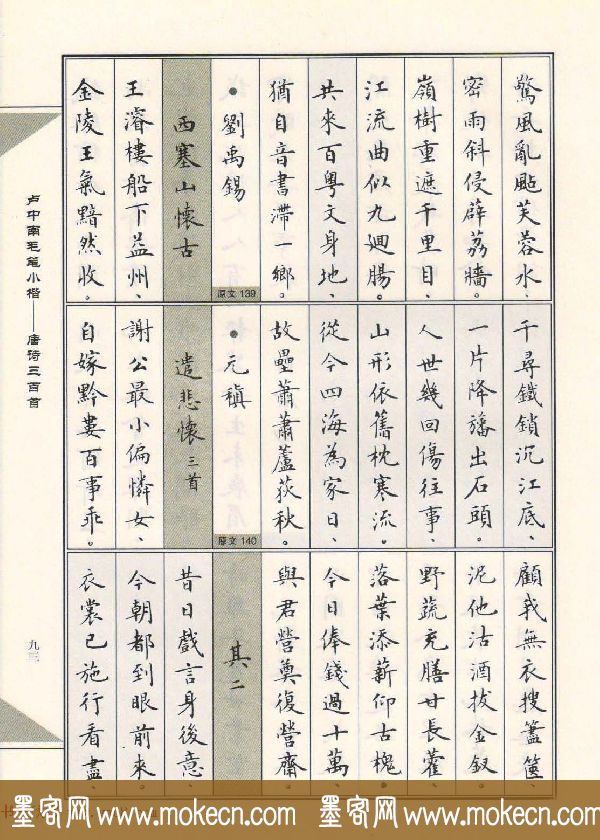 驚風亂颭芙蓉水、
密雨斜侵薜荔牆。
嶺樹重遮千里目、
江流曲似九迴腸。
共來百粵文身地、
猶自音書滯一鄉。
•劉禹錫
西塞山懷古
原文 139
王濬樓船下益州、
金陵王氣黯然收。
千尋鐵鎖沉江底、
一片降旛出石頭。
人世幾回傷往事、
山形依舊枕寒流。
從今四海為家日、
故壘蕭蕭蘆荻秋。
•元稹
遣悲懷 三首
原文 140
謝公最小偏憐女、
自嫁黔婁百事乖。
顧我無衣搜藎篋、
泥他沽酒拔金釵。
野蔬充膳甘長藿、
落葉添薪仰古槐。
今日俸錢過十萬、
與君營奠復營齋。
其二
昔日戲言身後意、
今朝都到眼前來。
衣裳已施行看盡、
卢中南毛笔小楷——唐诗三百首
九三
墨客网 www.mokecn.com 墨客网 www.mokecn.com